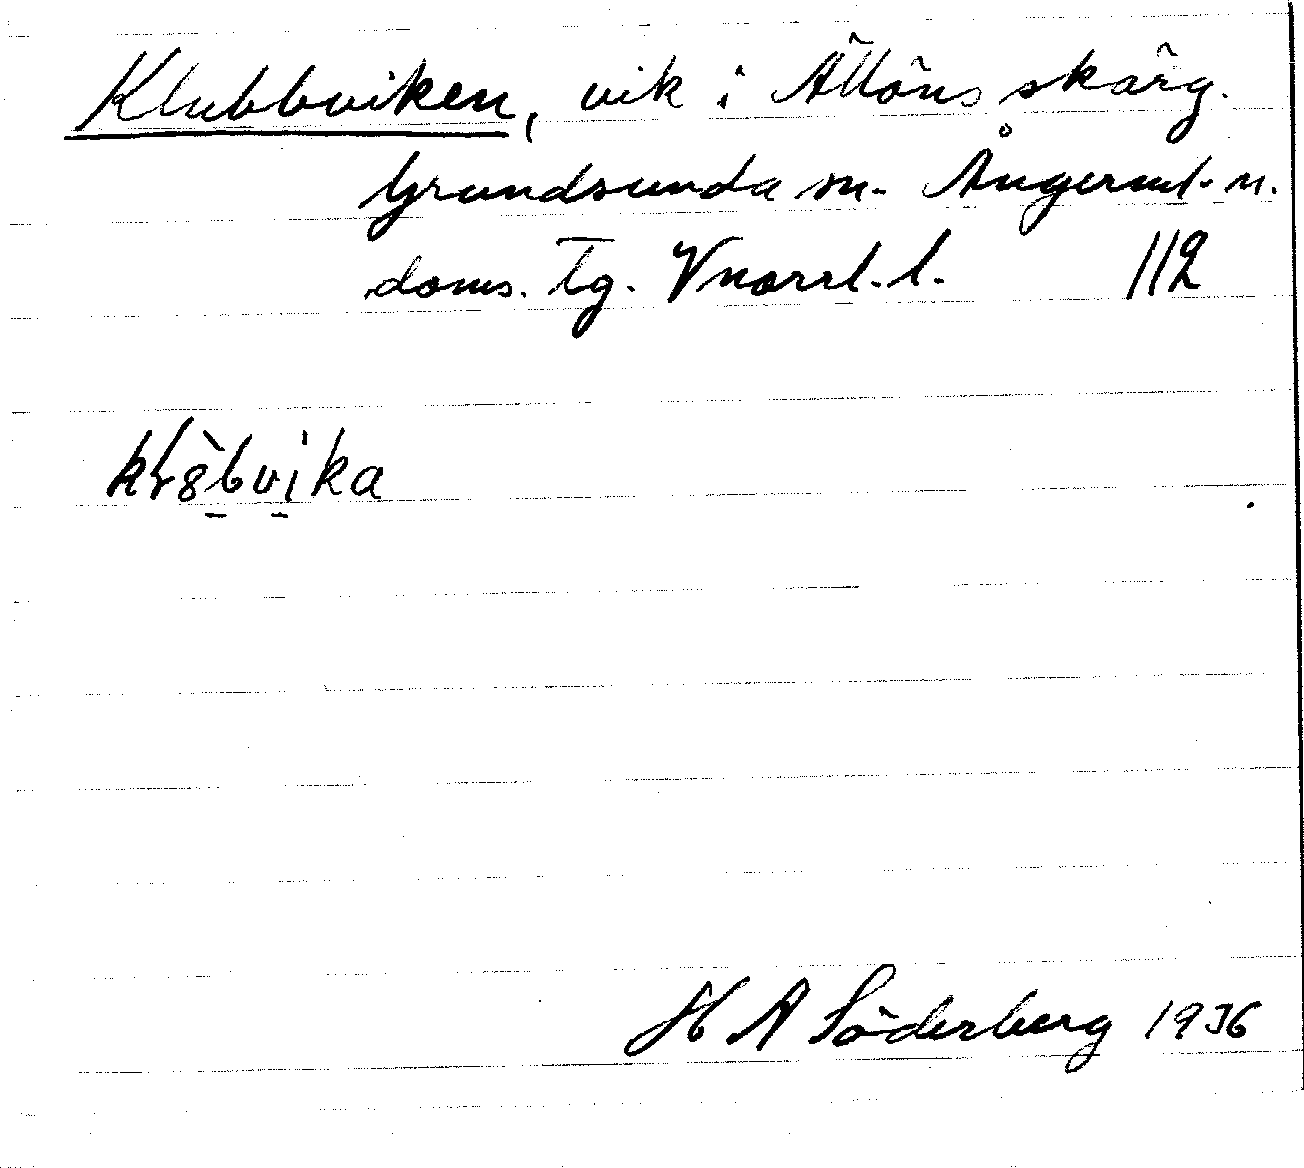 Klubbviken, vik i Ällöns skärg.
Grundsunda sn. Ångerml. n.
doms. tg. Vnorrl. l. 112
H A Söderberg 1936